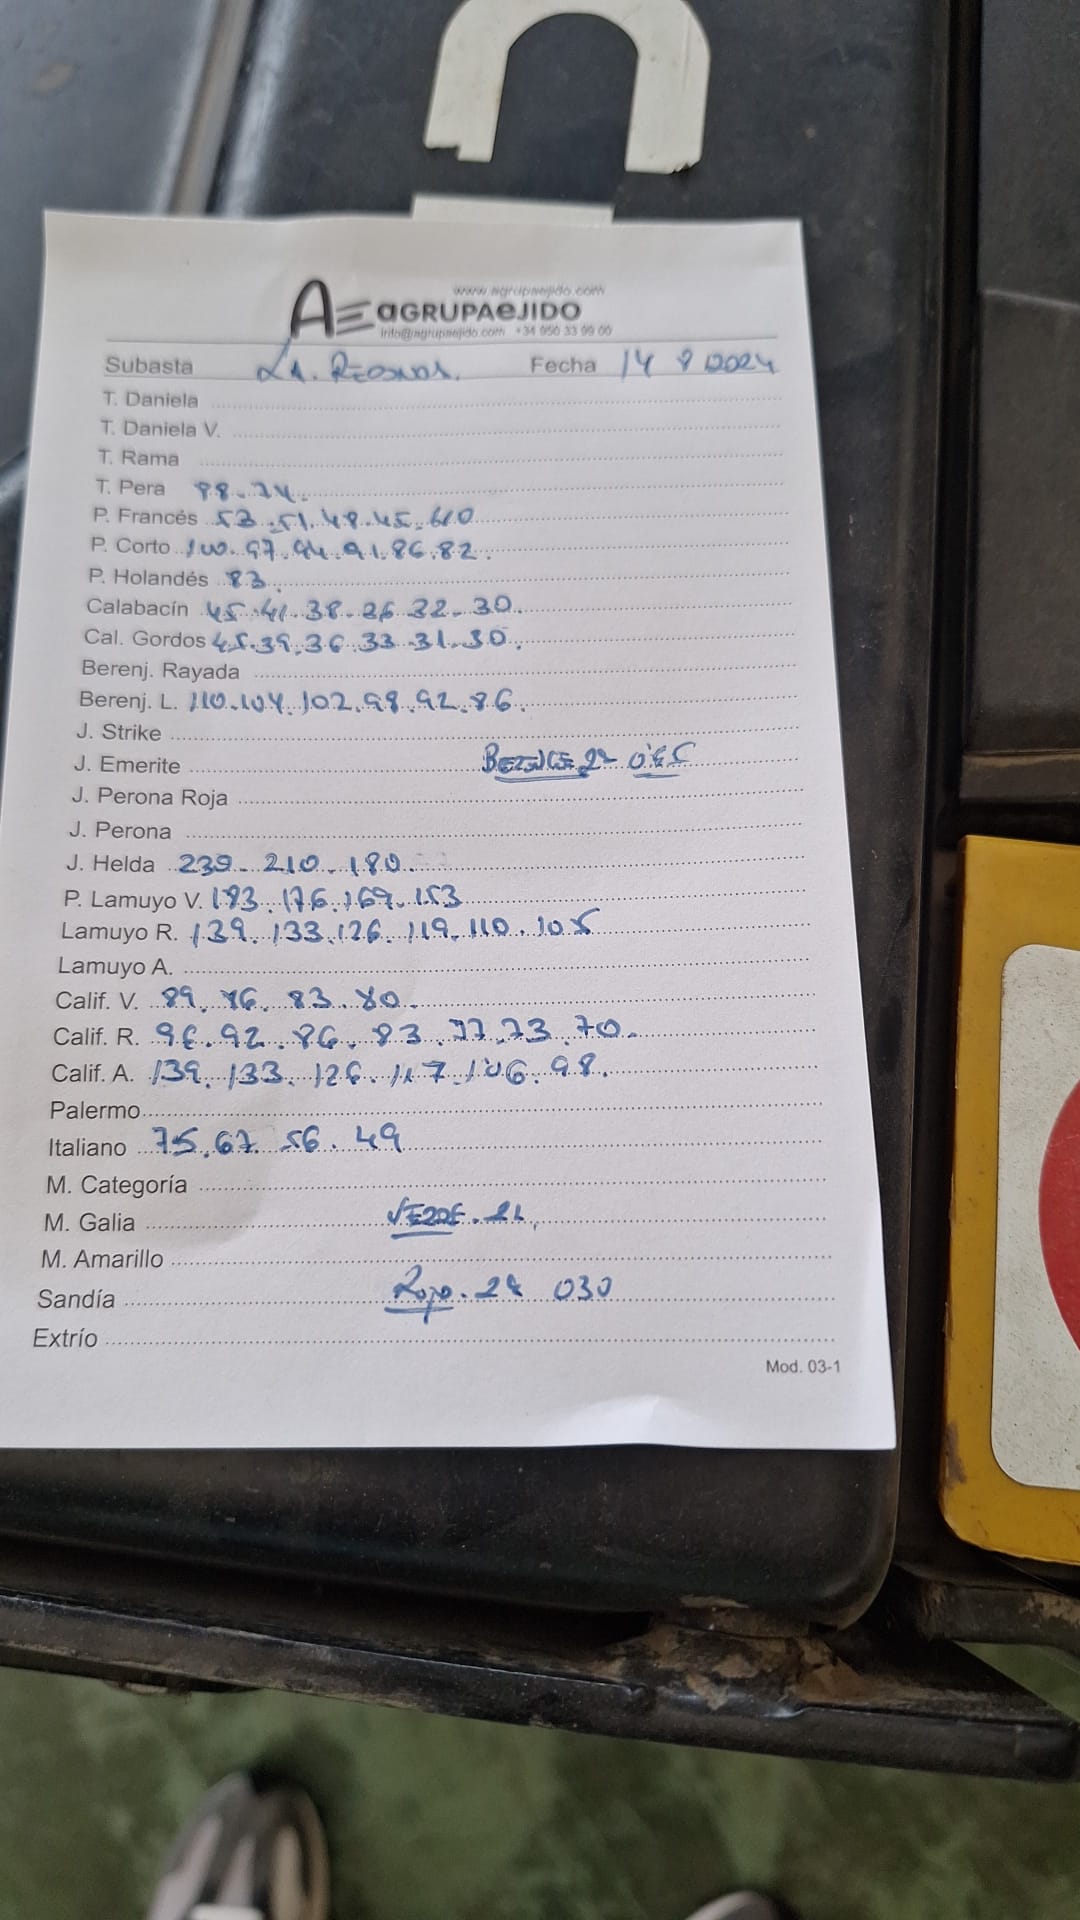 www.agrupaejido.com
AE aGRUPAeJIDO
info@agrupaejido.com +34 950 33 99 00
Subasta LA. REDONDA. Fecha 14 8 2024
T. Daniela
T. Daniela V.
T. Rama
T. Pera 88. 74.
P. Francés 53. 51. 48. 45. 40
P. Corto 100. 97. 94. 91. 86. 82.
P. Holandés 83.
Calabacín 45. 41. 38. 36. 32. 30.
Cal. Gordos 45. 39. 36. 33. 31. 30.
Berenj. Rayada
Berenj. L. 110. 104. 102. 98. 92. 86.
J. Strike
J. Emerite
J. Perona Roja
J. Perona
J. Helda 239. 210. 180.
P. Lamuyo V. 183. 176. 169. 153
Lamuyo R. 139. 133. 126. 119. 110. 105
Lamuyo A.
Calif. V. 89. 86. 83. 80.
Calif. R. 96. 92. 86. 83. 77. 73. 70.
Calif. A. 139. 133. 126. 117. 106. 98.
Palermo
Italiano 75. 67. 56. 49
M. Categoría
M. Galia VERDE.
M. Amarillo
Sandía Rojo. 2ª 030
Extrío
Mod. 03-1